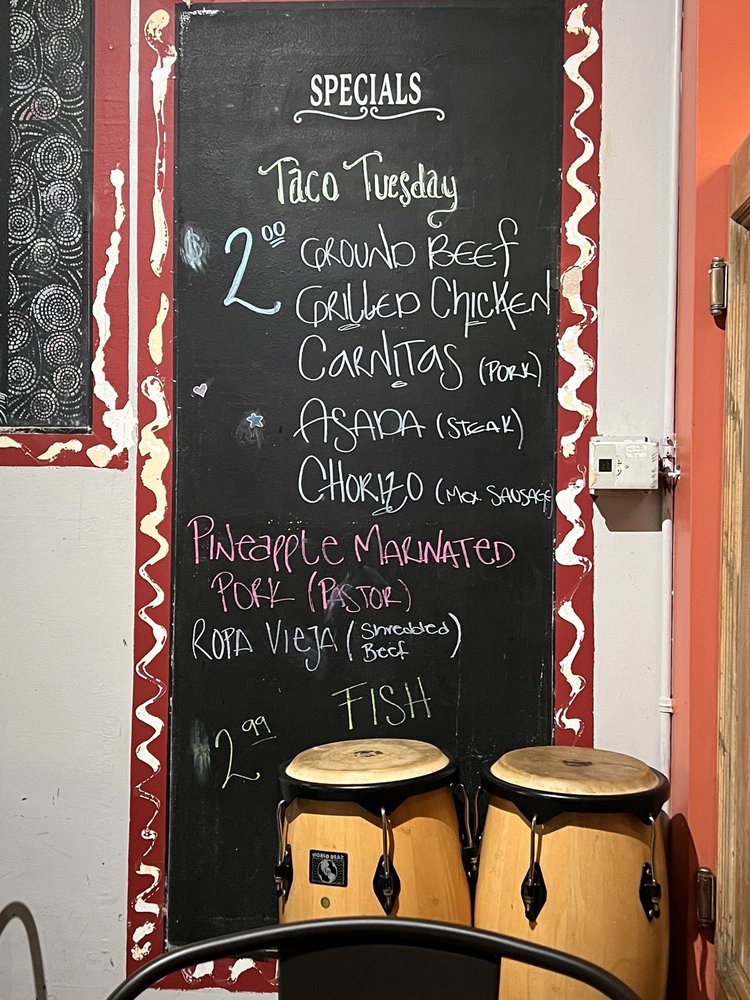 SPECIALS
Taco Tuesday
2.00 GROUND BEEF
GRILLED CHICKEN
CARNITAS (PORK)
ASADA (STEAK)
CHORIZO (Mex SAUSAGE
PINEAPPLE MARINATED
PORK (PASTOR)
ROPA VIEJA (Shredded
Beef)
FISH
2.99
WORLD BEAT